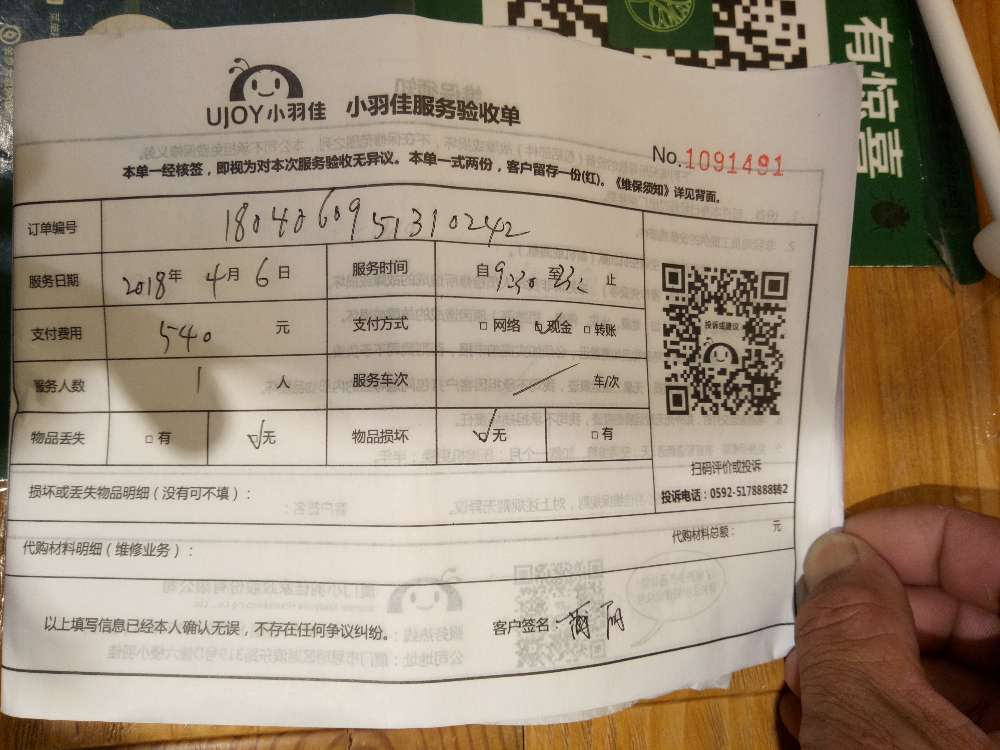 有惊喜
UJOY小羽佳 小羽佳服务验收单
No.1091491
本单一经核签，即视为对本次服务验收无异议。本单一式两份，客户留存一份(红)。《维保须知》详见背面。
订单编号 1804060951310242
服务日期 2018年 4月 6日 服务时间 自9:30至 止
支付费用 540 元 支付方式 □网络 ☑现金 □转账
服务人数 1 人 服务车次 / 车/次
物品丢失 □有 ☑无 物品损坏 ☑无 □有
投诉或建议
扫码评价或投诉
投诉电话：0592-5178888转2
损坏或丢失物品明细（没有可不填）：
代购材料明细（维修业务）： 代购材料总额： 元
以上填写信息已经本人确认无误，不存在任何争议纠纷。 客户签名：